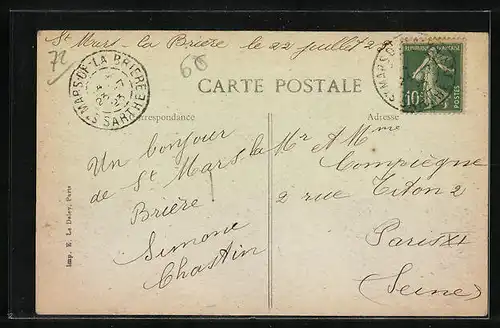 72
St Mars-la Brière le 22 juillet 2
60
ST MARS-DE-LA BRIERE
SARTHE
CARTE POSTALE
RÉPUBLIQUE FRANÇAISE
10
POSTES
Correspondance
Adresse
Un bonjour
de St Mars la
Brière
Simone
Chastin
Mr et Mme
Compiègne
2 rue Titon 2
Paris XI
(Seine)
Imp. E. Le Deley, Paris